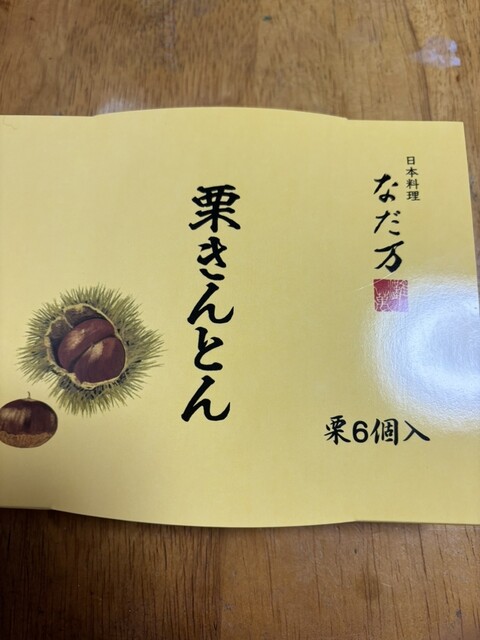 日本料理
なだ万
栗きんとん
栗6個入